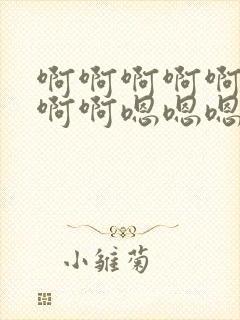 啊啊啊啊啊
啊啊嗯嗯嗯
小雏菊